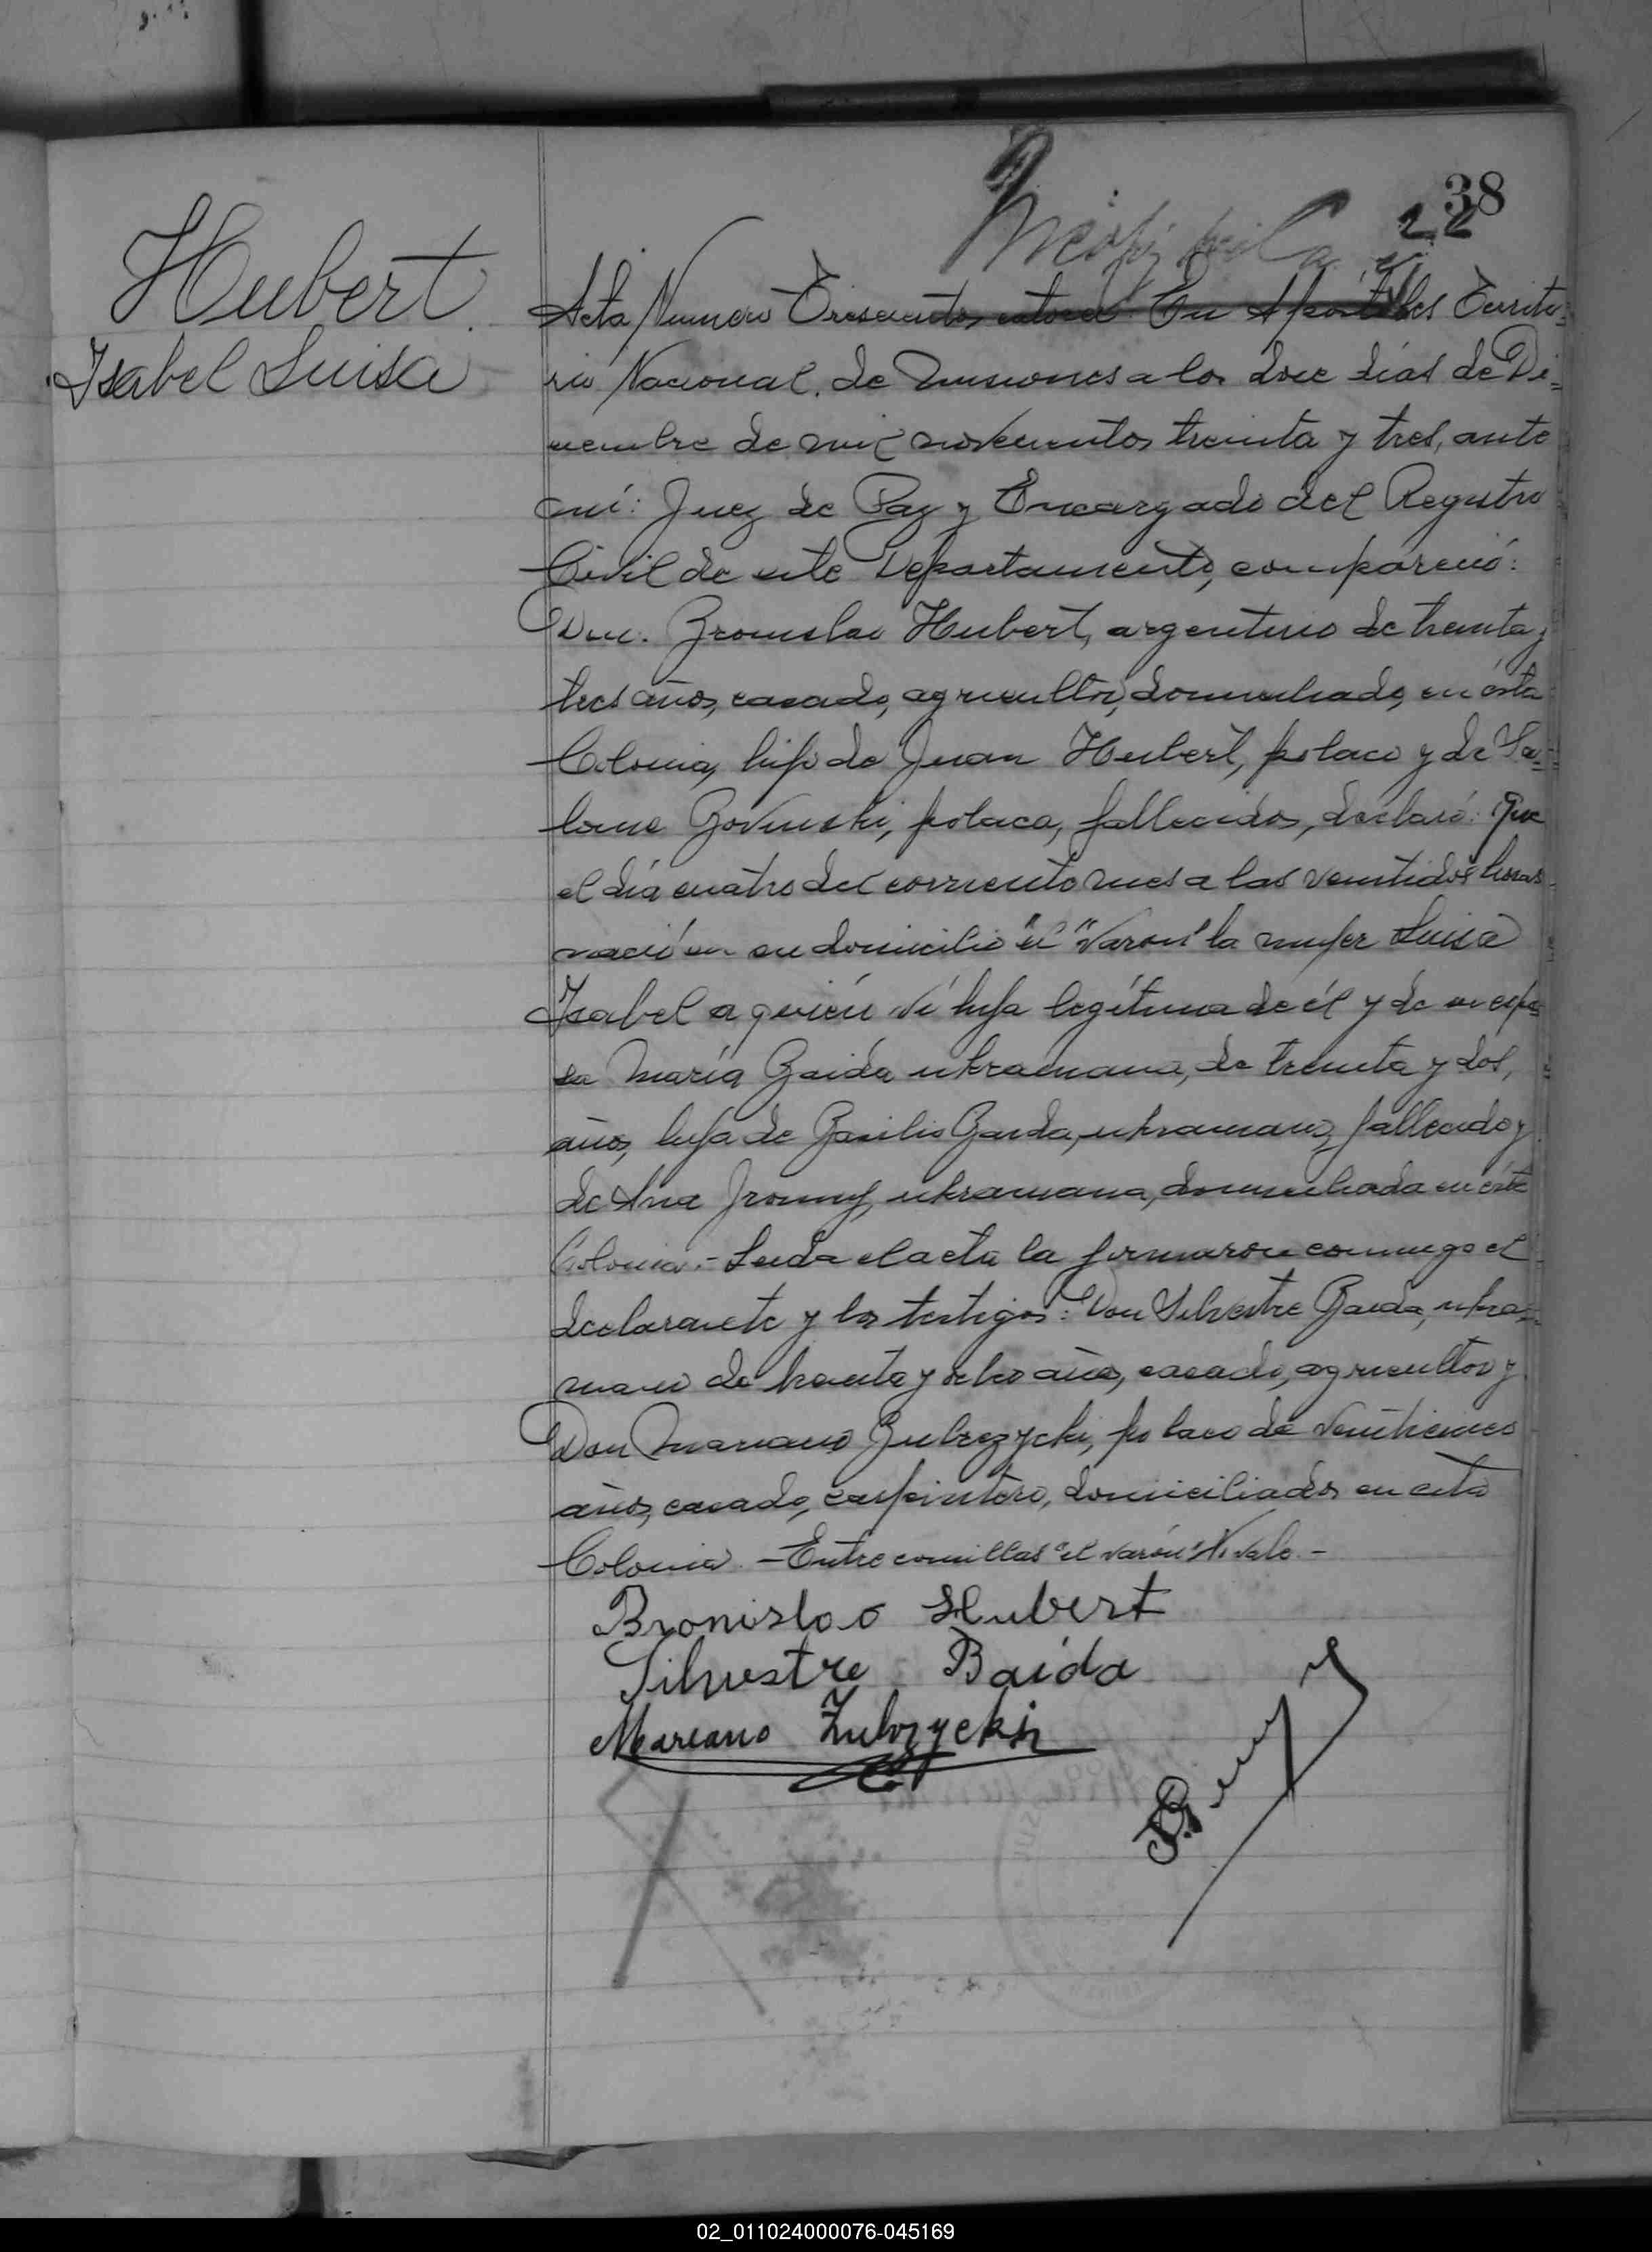 38
22
Hubert
Isabel Luisa
Acta Numero Trescientos catorce En Apostoles Territo=
rio Nacional. de Misiones a los doce días de Di=
ciembre de mil novecientos treinta y tres, ante
mí: Juez de Paz y Encargado del Registro
Civil de este Departamento, compareció:
Don. Bronislao Hubert, argentino de treinta y
tres años, casado, agricultor, domiciliado, en ésta
Colonia, hijo de Juan Hubert, polaco y de Sa=
lome polaca, fallecidos, declaró: Que
el día cuatro del corriente mes a las veintidos horas
nació en su domicilio "el "Varon" la mujer Luisa
Isabel a quién ví hija legítima de él y de su espo=
sa María Baida ukraniana, de treinta y dos,
años, hija de Basilio Baida, ukraniano, fallecido y
de Ana ukraniana, domiciliada en ésta
Colonia.- Leida el acta la firmaron conmigo el
declarante y los testigos: Don Silvestre Baida, ukra=
niano de treinta y ocho años, casado, agricultor y
Don Mariano Zubrzycki, polaco de veintinueve
años, casado, carpintero, domiciliados en esta
Colonia. -Entre comillas "el varón" No vale.-
Bronislao Hubert
Silvestre Baida
Mareano Zubrzycki
02_011024000076-045169